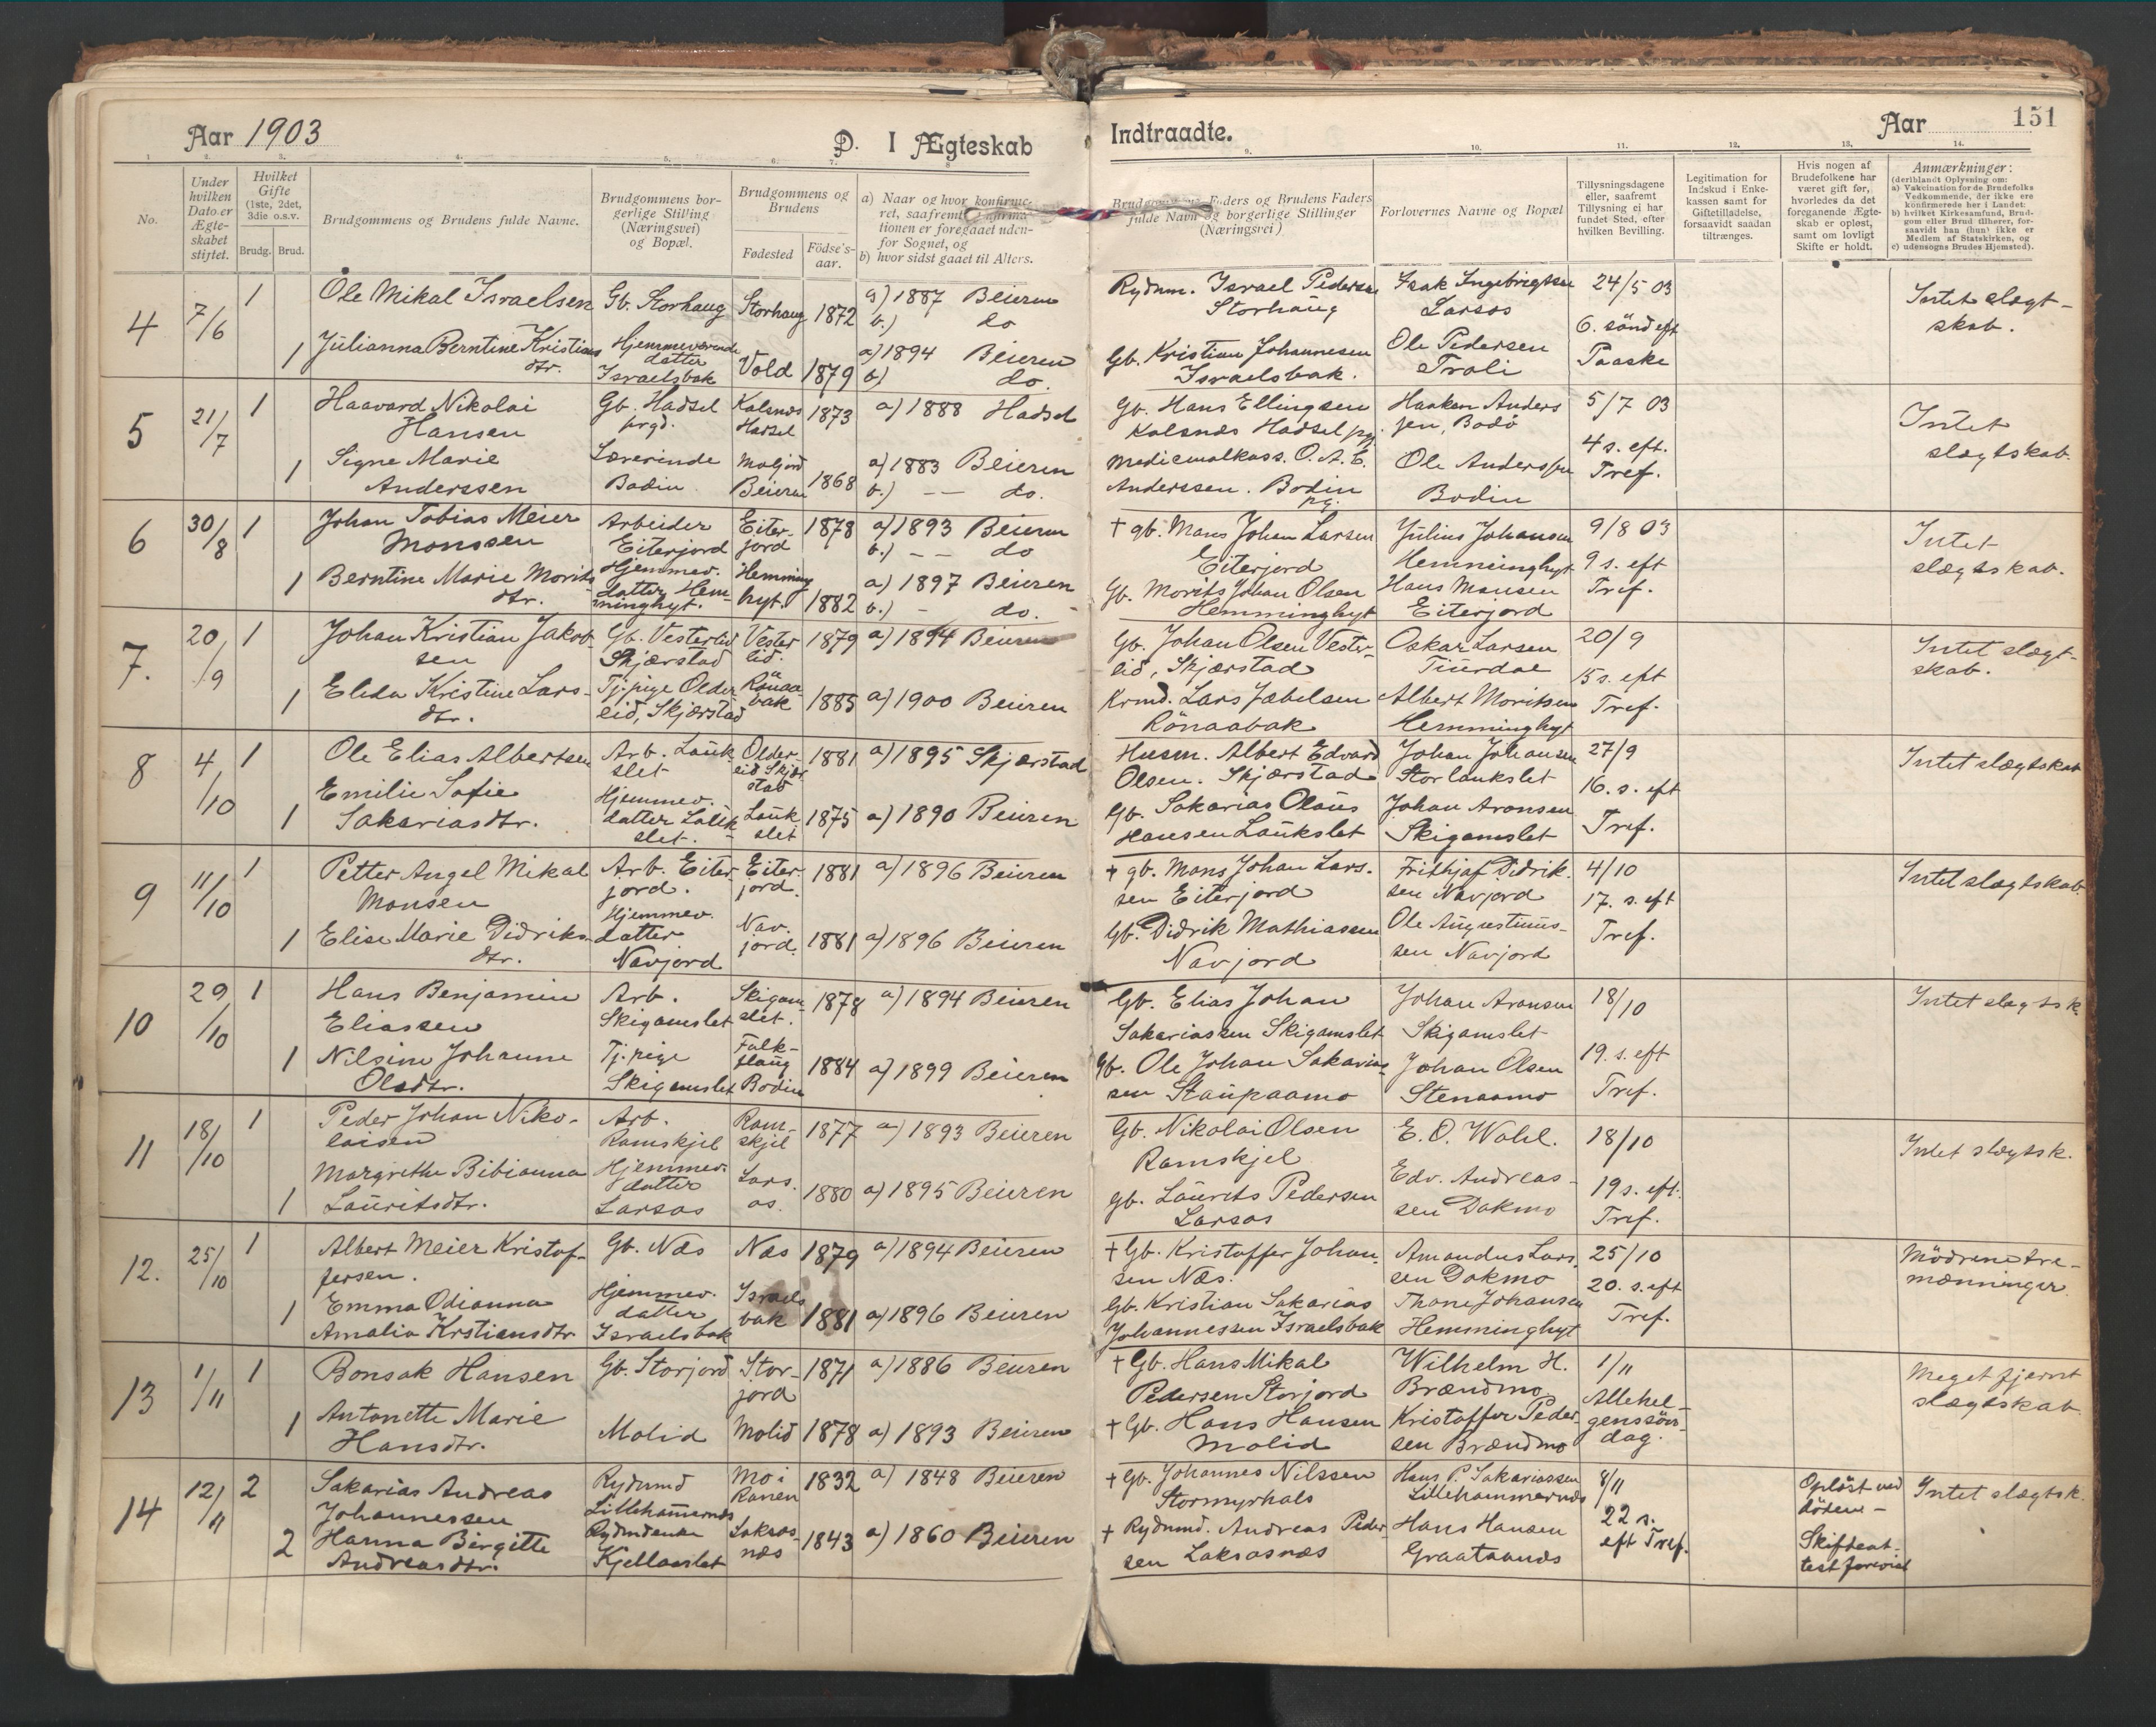 Aar 1903
D. I Ægteskab
Indtraadte.
Aar
151
1. 2. 3. 4. 5. 6. 7. 8. 9. 10. 11. 12. 13. 14.
No.
Under hvilken Dato er Ægteskabet stiftet.
Hvilket Gifte (1ste, 2det, 3die o.s.v.
Brudg. Brud.
Brudgommens og Brudens fulde Navne.
Brudgommens borgerlige Stilling (Næringsvei) og Bopæl.
Brudgommens og Brudens
Fødested
Födse's-aar.
a) Naar og hvor konfirmeret, saafremt
tionen er foregaaet udenfor Sognet, og
b) hvor sidst gaaet til Alters.
Faders og Brudens Faders
fulde Navn og borgerlige Stillinger
(Næringsvei)
Forlovernes Navne og Bopæl
Tillysningsdagene eller, saafremt Tillysning ej har fundet Sted, efter hvilken Bevilling.
Legitimation for Indskud i Enkekassen samt for Giftetilladelse, forsaavidt saadan tiltrænges.
Hvis nogen af Brudefolkene har været gift før, hvorledes da det foregaaende Ægteskab er opløst, samt om lovligt Skifte er holdt.
Anmærkninger:
(deriblandt Oplysning om:
a) Vakcination for de Brudefolks Vedkommende, der ikke ere konfirmerede her i Landet:
b) hvilket Kirkesamfund, Brudgom eller Brud tilhører, forsaavidt han (hun) ikke er Medlem af Statskirken, og
c) udensogns Brudes Hjemsted).
4 7/6 1 Ole Mikal Israelsen Gb. Storhaug Storhaug 1872 a) 1887 Beieren b.) do
Rydnm. Israel Pedersen Storhaug Isak Ingebrigtsen Larsos 24/5 03 6. sönd eft Paaske Intet slægtskab.
1 Julianna Berntine Kristians dtr. Hjemmeværende datter Israelsbak Vold 1879 a) 1894 Beieren b) do.
Gb. Kristian Johannesen Israelsbak. Ole Pedersen Troli
5 21/7 1 Haavard Nikolai Hansen Gb. Hadsel prgd. Kalsnes Hadsel 1873 a) 1888 Hadsel
Gb. Hans Ellingsen Kalsnæs Hadsel pg. Haaken Andersen, Bodö 5/7 03 4 s. eft. Tref. Intet slægtskab.
1 Signe Marie Anderssen Lærerinde Bodin Moljord Beieren 1868 a) 1883 Beieren b.) — do.
Medicinalkass. O. A. E. Anderssen. Bodin pg. Ole Anderssen Bodin
6 30/8 1 Johan Tobias Meier Monssen Arbeider Eiterjord Eiterjord 1878 a) 1893 Beieren b.) — do
† gb. Mons Johan Larsen Eiterjord Julius Johansen Hemminghyt 9/8 03 9 s. eft Tref. Intet slægtskab.
1 Berntine Marie Morits dtr. Hjemmev. datter Hemminghyt. Hemminghyt. 1882 a) 1897 Beieren b.) - do.
Gb. Morits Johan Olsen Hemminghyt Hans Monsen Eiterjord
7. 20/9 1 Johan Kristian Jakobsen Gb. Vesterlid Skjærstad Vesterlid. 1879 a) 1894 Beieren
Gb. Johan Olsen Vesterlid, Skjærstad Oskar Larsen 20/9 15 s. eft Tref. Intet slægtskab.
1 Elida Kristine Larsdtr. Tj.pige Oldereid, Skjærstad Rönaabak 1885 a) 1900 Beieren
Krmd. Lars Jæbelsen Rönaabak Albert Moritsen Hemminghyt
8 4/10 1 Ole Elias Albertsen Arb. Laukslet Oldereid Skjærstad 1881 a) 1895 Skjærstad
Husm. Albert Edvard Olsen. Skjærstad Johan Johansen Storlaukslet 27/9 16. s. eft Tref. Intet slægtskab
1 Emilie Sofie Sakariasdtr. Hjemmev. datter Laukslet. Laukslet 1875 a) 1890 Beieren
Gb. Sakarias Olaus Hansen Laukslet Johan Aronsen Skigamslet
9 11/10 1 Petter Angel Mikal Monsen Arb. Eiterjord. Eiterjord. 1881 a) 1896 Beieren
† gb. Mons Johan Larssen Eiterjord Frithjof Didriksen Navjord 4/10 17. s. eft Tref. Intet slægtskab.
1 Elise Marie Didriks dtr. Hjemmev. datter Navjord Navjord. 1881 a) 1896 Beieren
Gb. Didrik Mathiassen Navjord Ole Augustinussen Navjord
10 29/10 1 Hans Benjamin Eliassen Arb. Skigamslet Skigamslet. 1878 a) 1894 Beieren
Gb. Elias Johan Sakariassen Skigamslet Johan Aronsen Skigamslet 18/10 19. s. eft Tref. Intet slægtsk.
1 Nilsine Johanne Olsdtr. Tj.pige Skigamslet Bodin 1884 a) 1899 Beieren
Gb. Ole Johan Sakariassen Staupaamo Johan Olsen Stenaamo
11 18/10 1 Peder Johan Nikolaisen Arb. Ramskjel Ramskjel 1877 a) 1893 Beieren
Gb. Nikolai Olsen Ramskjel E. O. Wahl. 18/10 19 s. eft. Tref. Intet slægtsk.
1 Margrethe Bibianna Lauritsdtr. Hjemmev. datter Larsos Larsos. 1880 a) 1895 Beieren
gb. Laurits Pedersen Larsos Edv. Andreassen Dokmo
12. 25/10 1 Albert Meier Kristoffersen. Gb. Næs Næs 1879 a) 1894 Beieren
† Gb. Kristoffer Johansen Næs. Amandus Larssen Dokmo 25/10 20. s. eft Tref. Mödrene tremænninger.
1 Emma Odianna Amalia Krstiansdtr Hjemmev. datter Israelsbak Israelsbak 1881 a) 1896 Beieren
Gb. Kristian Sakarias Johannessen Israelsbak Thone Johansen Hemminghyt
13 1/11 1 Bonsak Hansen Gb. Storjord Storjord 1871 a) 1886 Beieren
† Gb. Hans Mikal Pedersen Storjord Wilhelm H. Brændmo 1/11 Allehelgenssöndag. Meget fjernt slægtskab.
1 Antonette Marie Hansdtr. Molid Molid 1878 a) 1893 Beieren
† Gb. Hans Hansen Molid Kristoffer Pedersen Brændmo
14 12/11 2 Sakarias Andreas Johannessen Rydnmd Lillehammernes Mo i Ranen 1832 a) 1848 Beieren
† Gb. Johannes Nilssen Stormyrhals Hans P. Sakariassen Lillehammernæs 8/11 22 s. eft Tref. Oplöst ved döden - Skifteattest forevist Intet slægtsk.
2 Hanna Birgitte Andreasdtr. Rydmdenke Kjellaaslet Laksosnæs 1843 a) 1860 Beieren
† Rydnmd. Andreas Pedersen Laksosnæs Hans Hansen Graataanæs